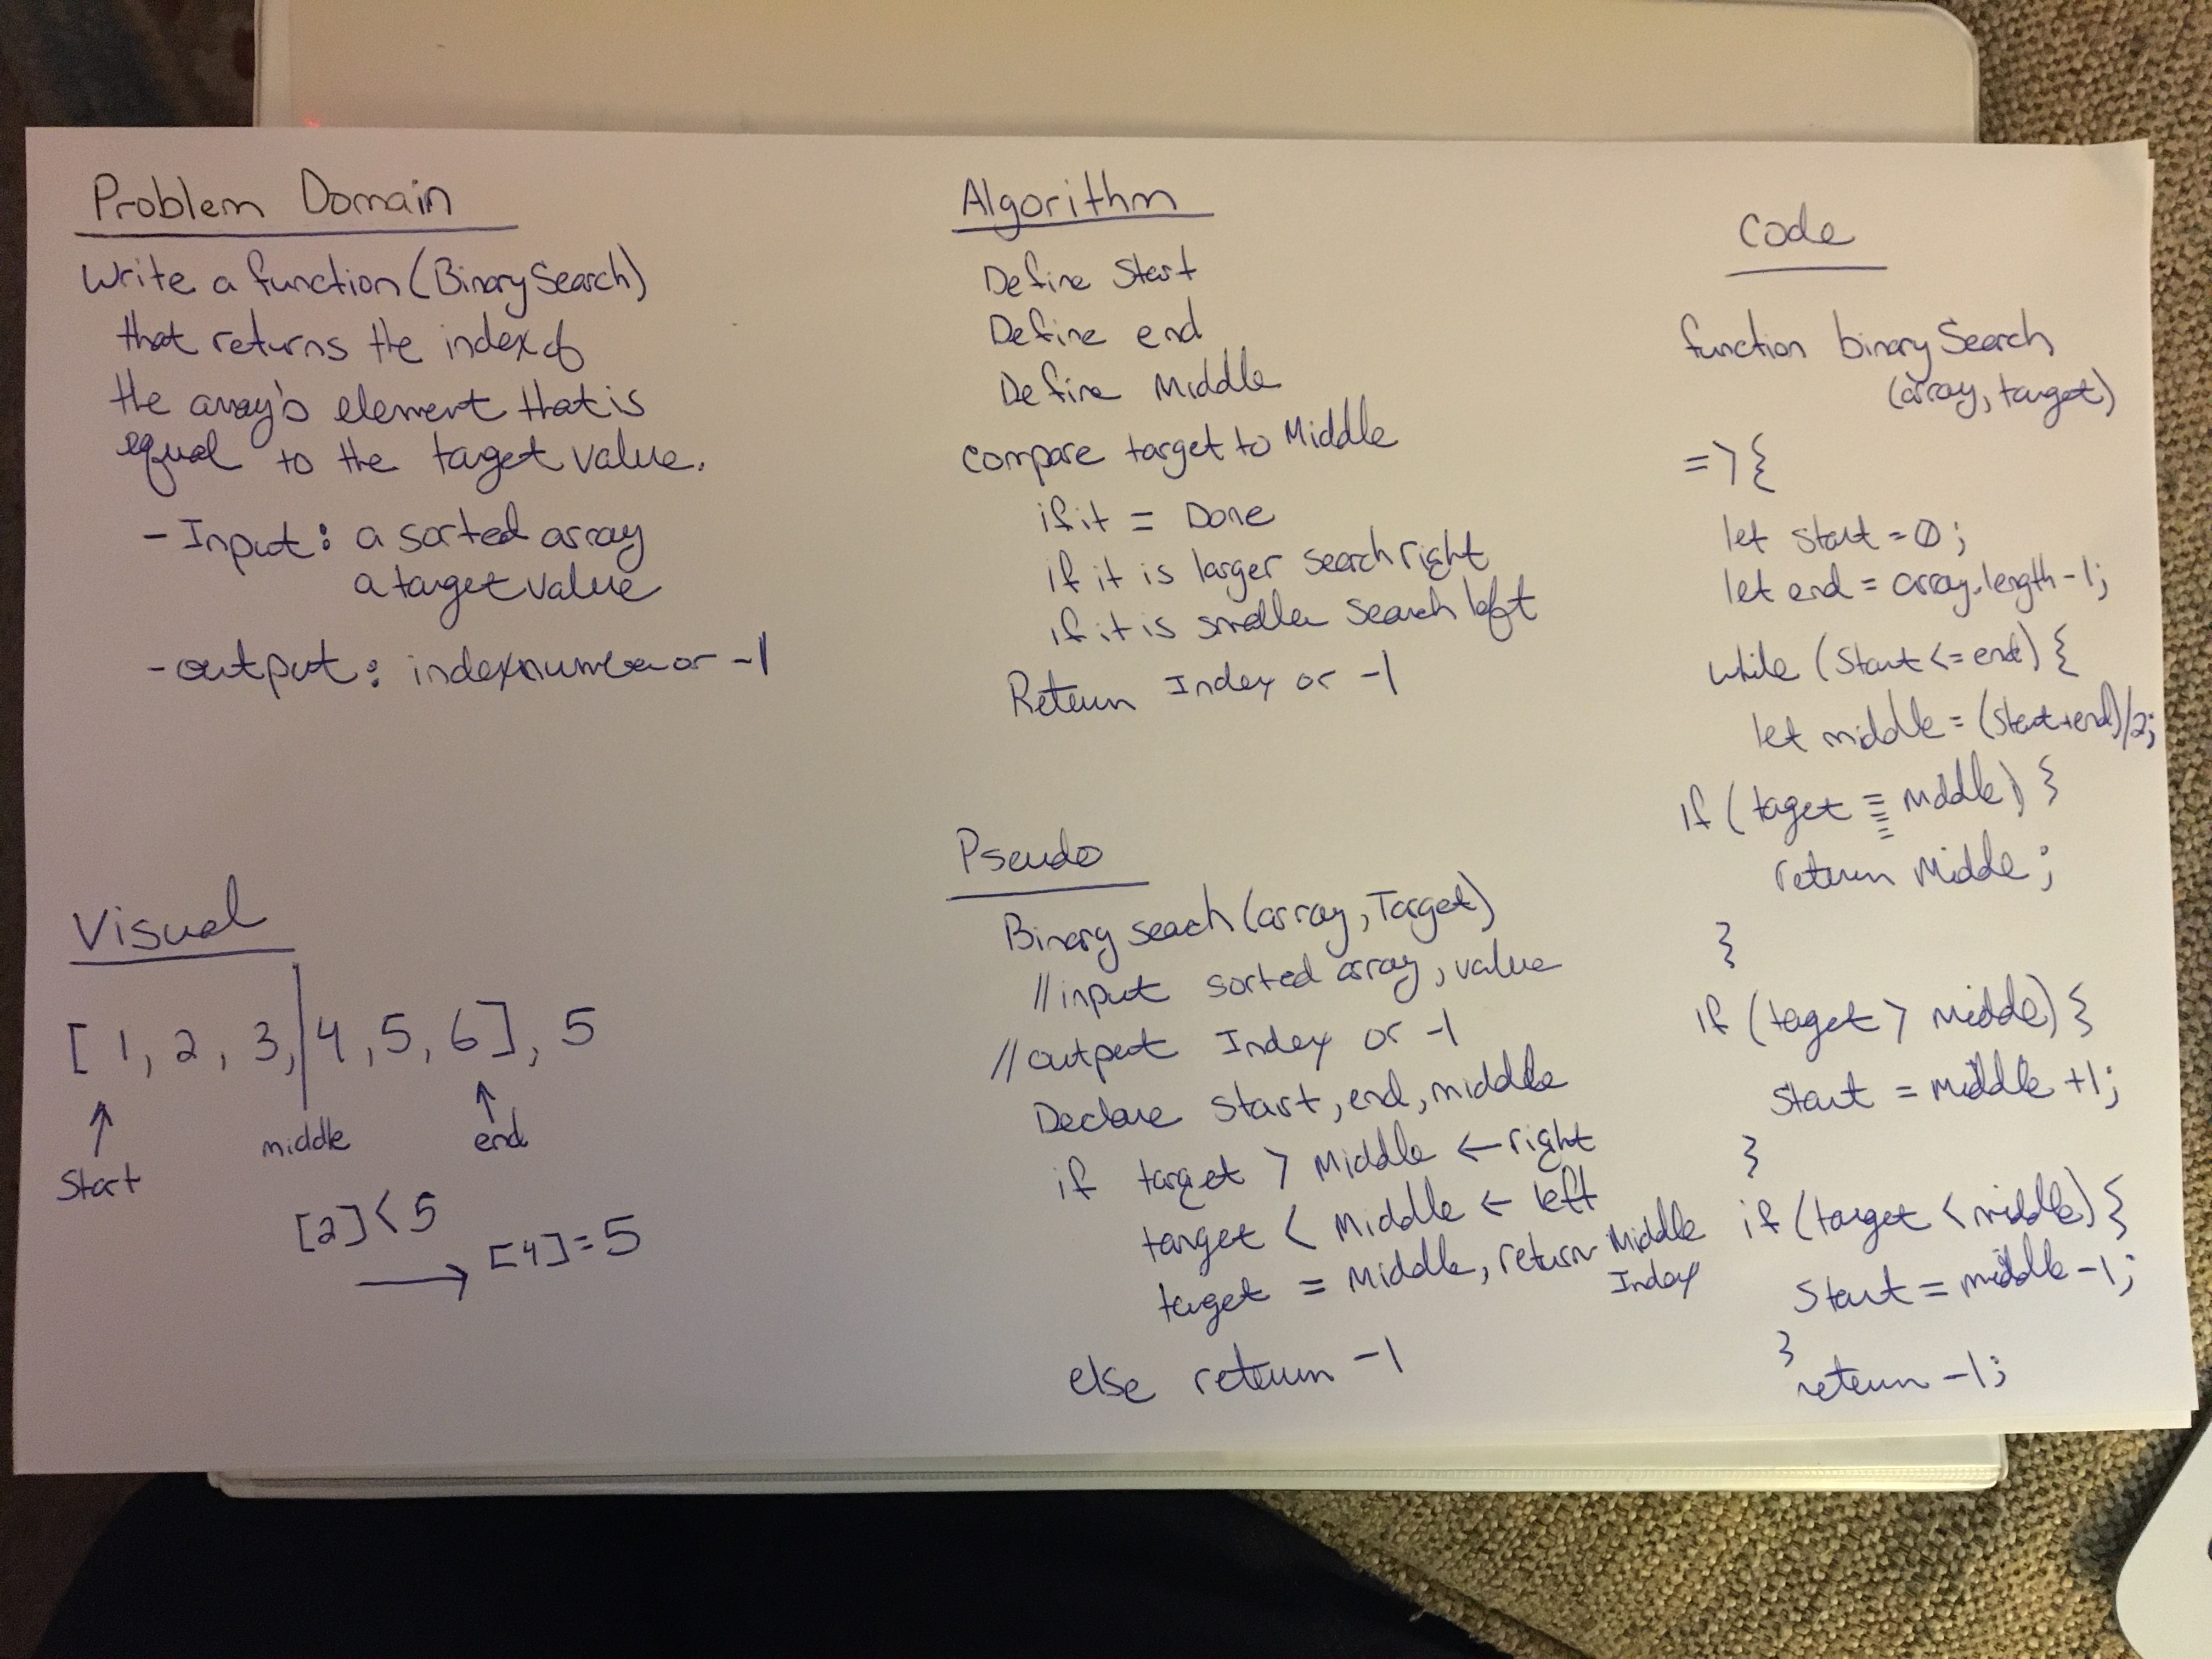 Problem Domain
Write a function (Binary Search)
that returns the index of
the array's element that is
equal to the target value.
- Input: a sorted array
a target value
- output: index number or -1
Visual
[ 1, 2, 3, | 4, 5, 6 ], 5
↑ ↑
start middle end
[2] < 5
→ [4] = 5
Algorithm
Define Start
Define end
Define Middle
compare target to Middle
if it = Done
if it is larger search right
if it is smaller search left
Return Index or -1
Pseudo
Binary Search (array, Target)
//input sorted array, value
//output Index or -1
Declare start, end, middle
if target > Middle ← right
target < Middle ← left
target = Middle, return Middle
Index
else return -1
Code
function binary Search
(array, target)
=> {
let start = 0;
let end = array.length -1;
while (start <= end) {
let middle = (start + end)/2;
if (target === middle) {
return middle;
}
if (target > middle) {
start = middle +1;
}
if (target < middle) {
start = middle -1;
}
return -1;